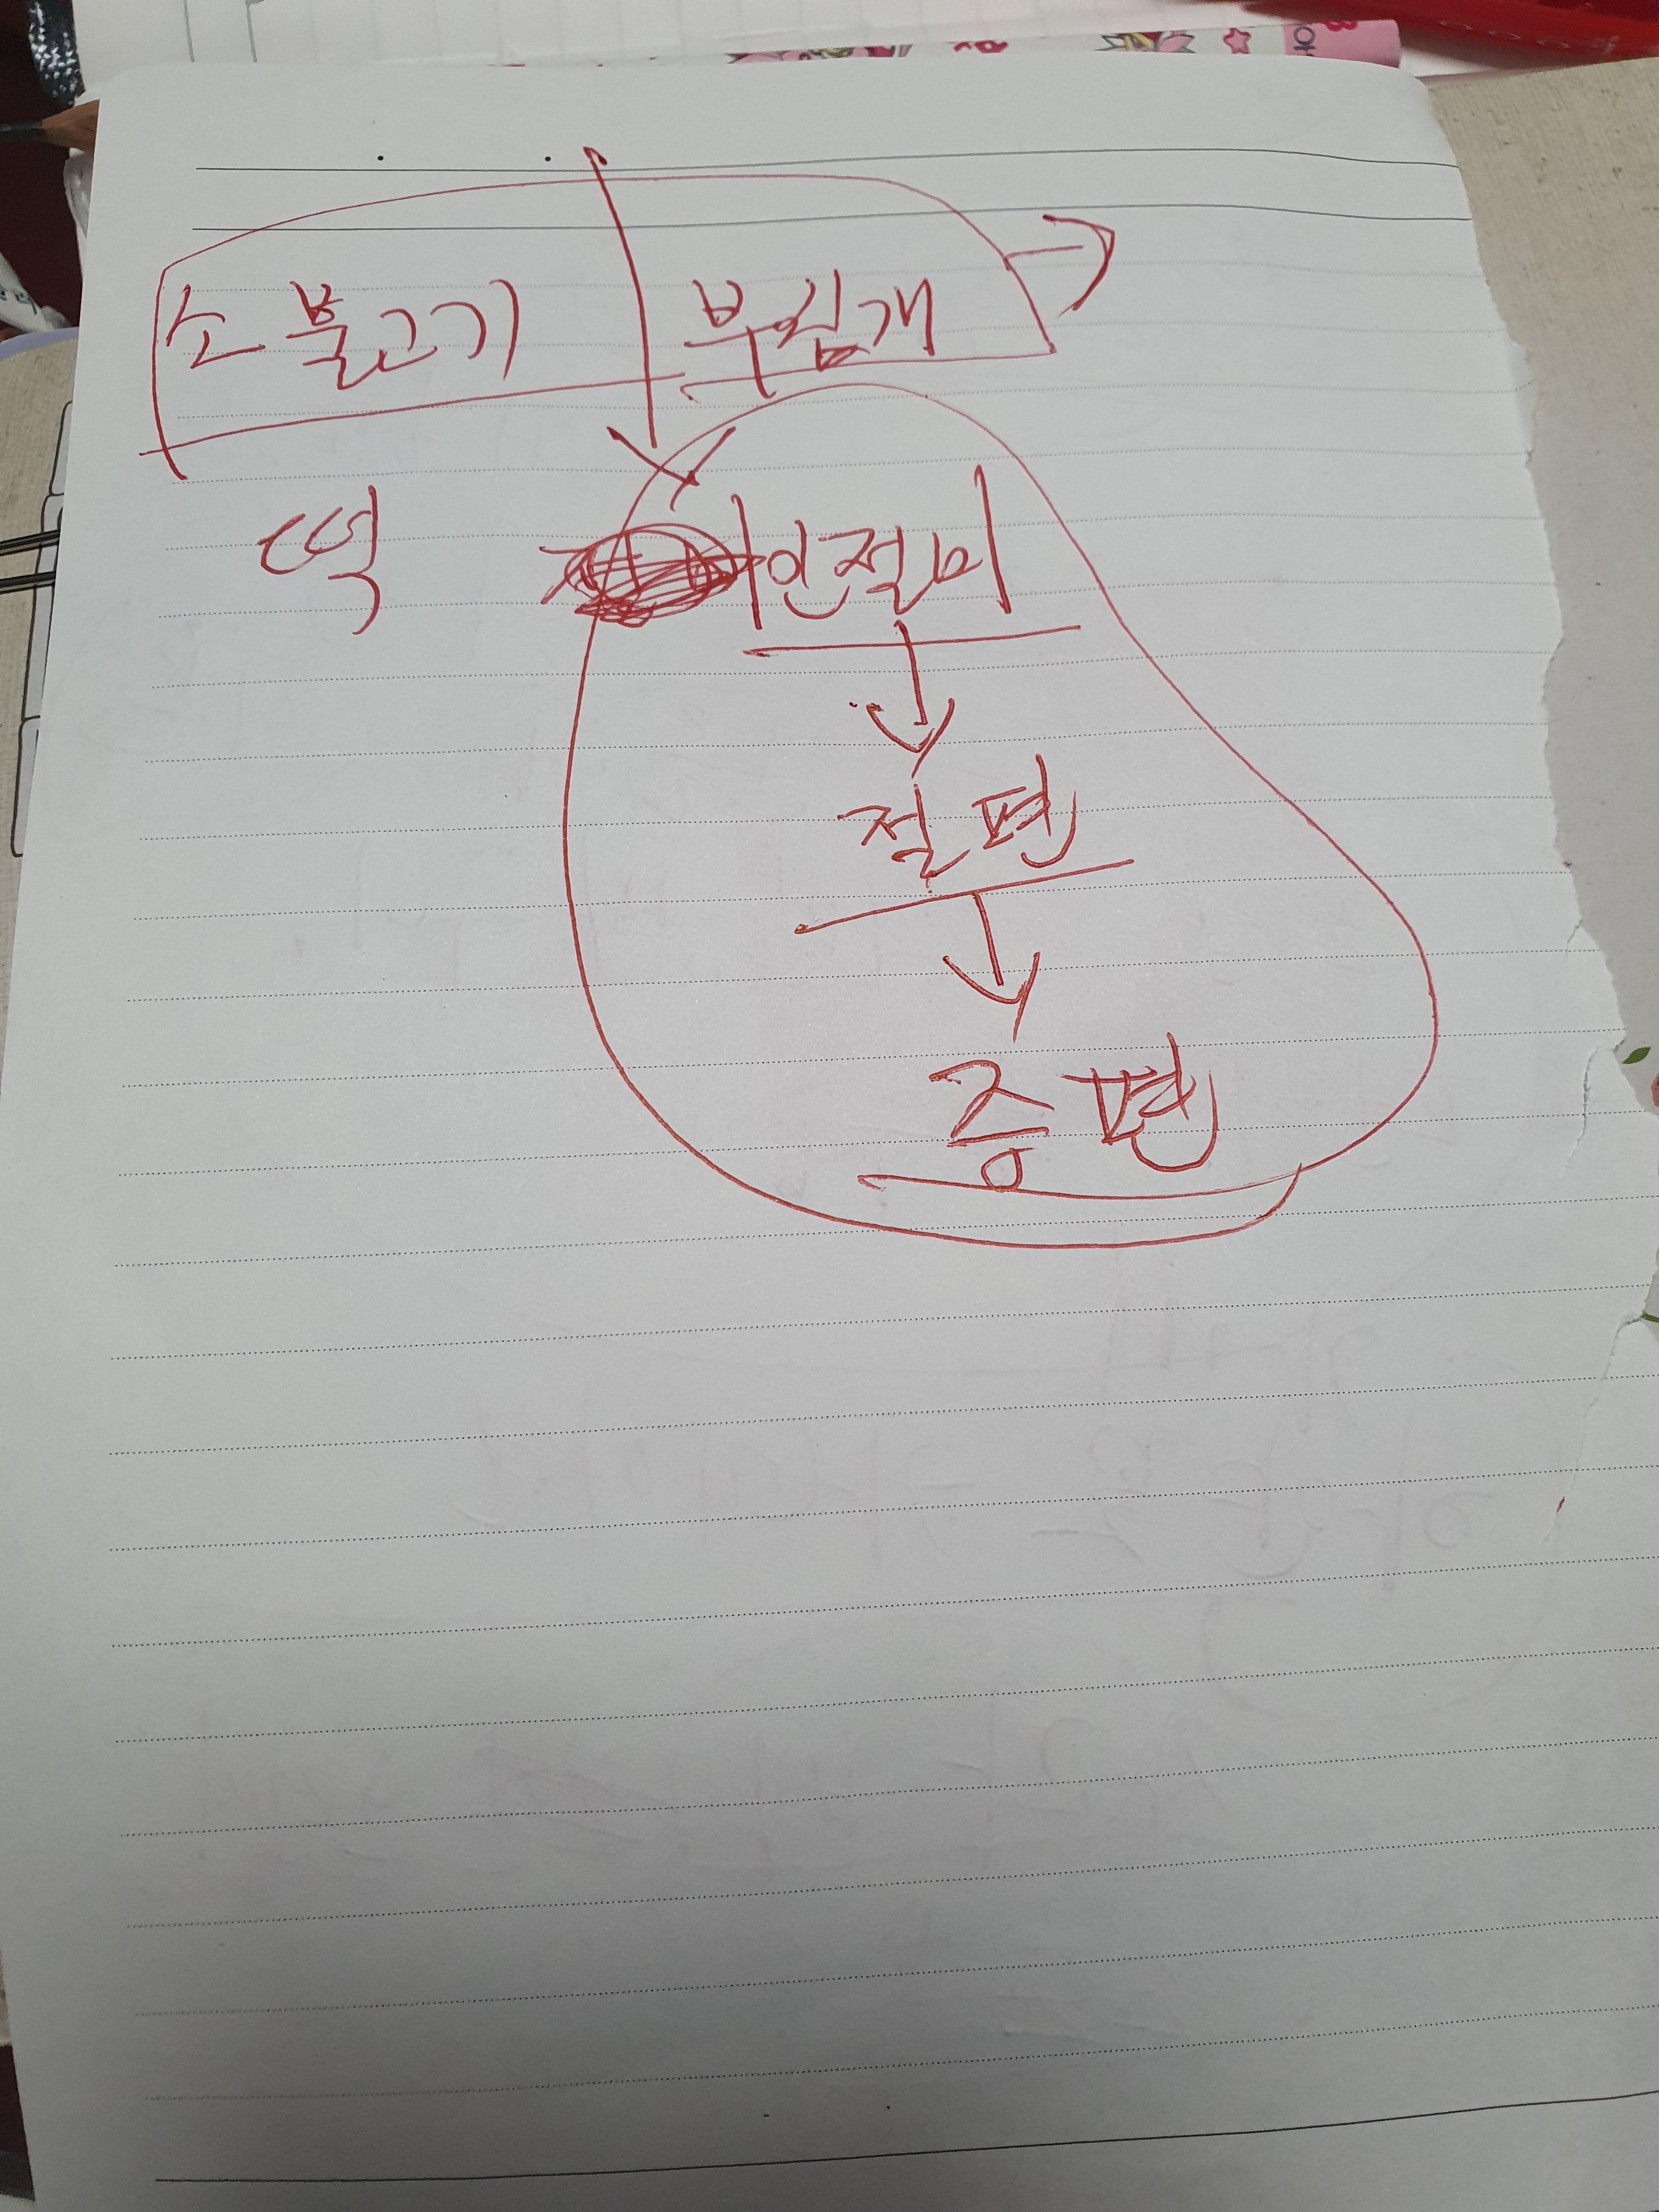 소 불고기 부침개
떡 인절미
절편
증편